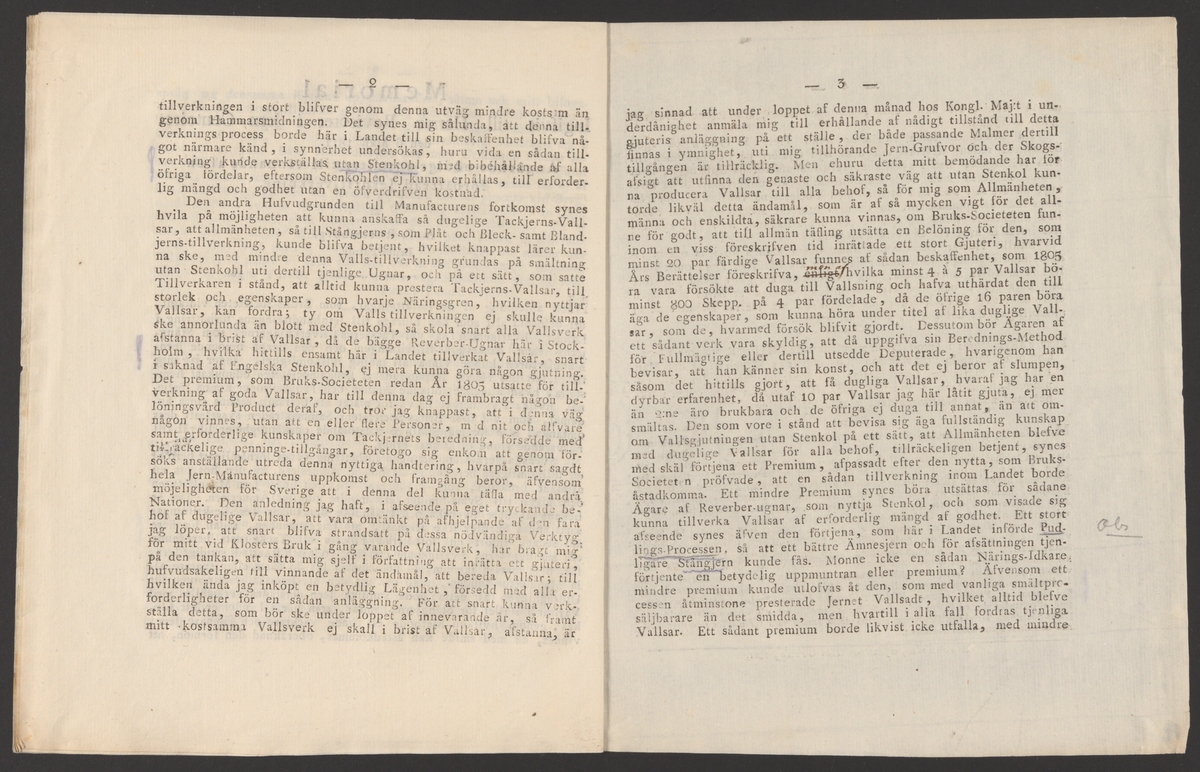 — 2 —
tillverkningen i stort blifver genom denna utväg mindre kostsam än
genom Hammarsmidningen. Det synes mig sålunda, att denna till-
verknings process borde här i Landet till sin beskaffenhet blifva nå-
got närmare känd, i synnerhet undersökas, huru vida en sådan till-
verkning kunde verkställas utan Stenkohl, med bibehållande af alla
öfriga fördelar, eftersom Stenkohlen ej kunna erhållas, till erforder-
lig mängd och godhet utan en öfverdrifven kostnad.
Den andra Hufvudgrunden till Manufacturens fortkomst synes
hvila på möjligheten att kunna anskaffa så dugelige Tackjerns-Vall-
sar, att allmänheten, så till Stångjerns, som Plåt och Bleck- samt Bland-
jerns-tillverkning, kunde blifva betjent, hvilket knappast lärer kun-
na ske, med mindre denna Valls-tillverkning grundas på smältning
utan Stenkohl uti dertill tjenlige Ugnar, och på ett sätt, som satte
Tillverkaren i stånd, att alltid kunna prestera Tackjerns-Vallsar, till
storlek och egenskaper, som hvarje Näringsgren, hvilken nyttjar
Vallsar, kan fordra; ty om Valls tillverkningen ej skulle kunna
ske annorlunda än blott med Stenkohl, så skola snart alla Vallsverk
afstanna i brist af Vallsar, då de bägge Reverber-Ugnar här i Stock-
holm, hvilka hittills ensamt här i Landet tillverkat Vallsar, snart
i saknad af Engelska Stenkohl, ej mera kunna göra någon gjutning.
Det premium, som Bruks-Societeten redan År 1805 utsatte för till-
verkning af goda Vallsar, har till denna dag ej frambragt någon be-
löningsvärd Product deraf, och tror jag knappast, att i denna väg
någon vinnes, utan att en eller flere Personer, m d nit och alfvare
samt erforderlige kunskaper om Tackjernets beredning, försedde med
tillräckelige penninge-tillgångar, företogo sig enkom att genom för-
söks anställande utreda denna nyttiga handtering, hvarpå snart sagdt
hela Jern-Manufacturens uppkomst och framgång beror, äfvensom
möjeligheten för Sverige att i denna del kunna täfla med andra
Nationer. Den anledning jag haft, i afseende på eget tryckande be-
hof af dugelige Vallsar, att vara omtänkt på afhjelpande af den fara
jag löper, att snart blifva strandsatt på dessa nödvändiga Verktyg
för mitt vid Klosters Bruk i gång varande Vallsverk, har bragt mig
på den tankan, att sätta mig sjelf i författning att inrätta ett gjuteri,
hufvudsakeligen till vinnande af det ändamål, att bereda Vallsar; till
hvilken ända jag inköpt en betydlig Lägenhet, försedd med alla er-
forderligheter för en sådan anläggning. För att snart kunna verk-
ställa detta, som bör ske under loppet af innevarande år, så framt
mitt kostsamma Vallsverk ej skall i brist af Vallsar, afstanna, är
— 3 —
jag sinnad att under loppet af denna månad hos Kongl. Maj:t i un-
derdånighet anmäla mig till erhållande af nådigt tillstånd till detta
gjuteris anläggning på ett ställe, der både passande Malmer dertill
finnas i ymnighet, uti mig tillhörande Jern-Grufvor och der Skogs-
tillgången är tillräcklig. Men ehuru detta mitt bemödande har för
afsigt att utfinna den genaste och säkraste väg att utan Stenkol kun-
na producera Vallsar till alla behof, så för mig som Allmänheten,
torde likväl detta ändamål, som är af så mycken vigt för det all-
männa och enskildta, säkrare kunna vinnas, om Bruks-Societeten fun-
ne för godt, att till allmän täfling utsätta en Belöning för den, som
inom en viss föreskrifven tid inrättade ett stort Gjuteri, hvarvid
minst 20 par färdige Vallsar funnes af sådan beskaffenhet, som 1805
Års Berättelser föreskrifva, men hvilka minst 4 à 5 par Vallsar bö-
ra vara försökte att duga till Vallsning och hafva uthärdat den till
minst 800 Skepp. på 4 par fördelade, då de öfrige 16 paren böra
äga de egenskaper, som kunna höra under titel af lika duglige Vall-
sar, som de, hvarmed försök blifvit gjordt. Dessutom bör Ägaren af
ett sådant verk vara skyldig, att då uppgifva sin Berednings-Method
för Fullmägtige eller dertill utsedde Deputerade, hvarigenom han
bevisar, att han känner sin konst, och att det ej beror af slumpen,
såsom det hittills gjort, att få dugliga Vallsar, hvaraf jag har en
dyrbar erfarenhet, då utaf 10 par Vallsar jag här låtit gjuta, ej mer
än 2:ne äro brukbara och de öfriga ej duga till annat, än att om-
smältas. Den som vore i stånd att bevisa sig äga fullständig kunskap
om Vallsgjutningen utan Stenkol på ett sätt, att Allmänheten blefve
med dugelige Vallsar för alla behof, tillräckeligen betjent, synes
med skäl förtjena ett Premium, afpassadt efter den nytta, som Bruks-
Societeten pröfvade, att en sådan tillverkning inom Landet borde
åstadkomma. Ett mindre Premium synes böra utsättas för sådane
Ägare af Reverber-ugnar, som nyttja Stenkol, och som visade sig
kunna tillverka Vallsar af erforderlig mängd af godhet. Ett stort
afseende synes äfven den förtjena, som här i Landet införde Pud-
lings-Processen, så att ett bättre Ämnesjern och för afsättningen tjen-
ligare Stångjern kunde fås. Monne icke en sådan Närings-Idkare,
förtjente en betydelig uppmuntran eller premium? Äfvensom ett
mindre premium kunde utlofvas åt den, som med vanliga smältpro-
cessen åtminstone presterade Jernet Vallsadt, hvilket alltid blefve
säljbarare än det smidda, men hvartill i alla fall fordras tjenliga
Vallsar. Ett sådant premium borde likvist icke utfalla, med mindre
obs